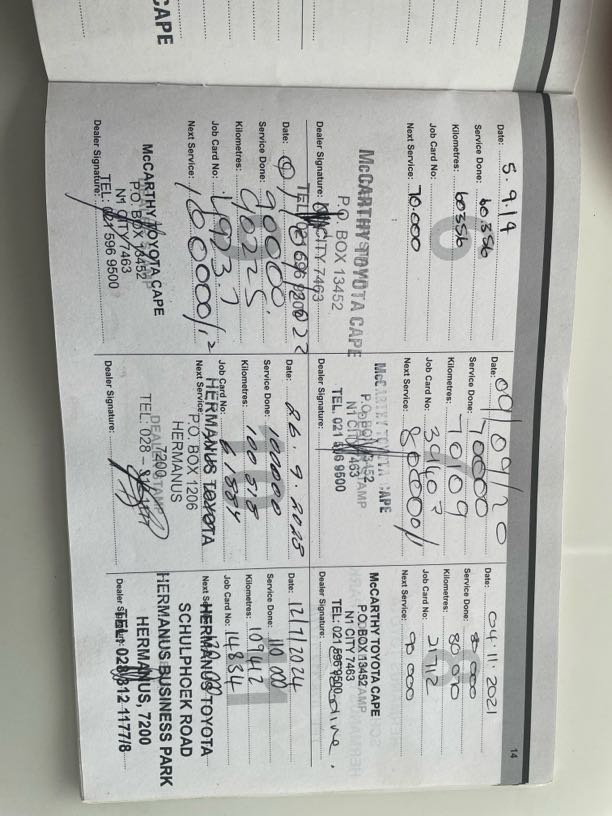 CAPE
14
Date: 5.9.19
Service Done: 60.356
Kilometres: 60356
Job Card No:
Next Service: 70.000
McCARTHY TOYOTA CAPE
P.O. BOX 13452
N1 CITY 7463
Dealer Signature:
Date: 09/09/20
Service Done: 70000
Kilometres: 70109
Job Card No: 39407
Next Service: 80000
McCARTHY TOYOTA CAPE
P.O. BOX 13452
N1 CITY 7463
TEL. 021 596 9500
Dealer Signature:
Date: 04.11.2021
Service Done: 80 000
Kilometres: 80 090
Job Card No: 21712
Next Service: 90 000
McCARTHY TOYOTA CAPE
P.O. BOX 13452
N1 CITY 7463
TEL: 021 596 9500
Dealer Signature:
Date:
Service Done: 90000
Kilometres: 90225
Job Card No: 4923.7
Next Service: 100000/12
McCARTHY TOYOTA CAPE
P.O. BOX 13452
N1 CITY 7463
TEL: 021 596 9500
Dealer Signature:
Date:
Service Done: 100000
Kilometres: 100518
Job Card No:
Next Service:
HERMANUS TOYOTA
P.O. BOX 1206
HERMANUS
7200
DEALER STAMP
TEL: 028 –
Dealer Signature:
Date: 12/7/2024
Service Done: 110 000
Kilometres:
Job Card No: 14834
HERMANUS TOYOTA
SCHULPHOEK ROAD
HERMANUS BUSINESS PARK
HERMANUS, 7200
TEL: 028 312 1177/8